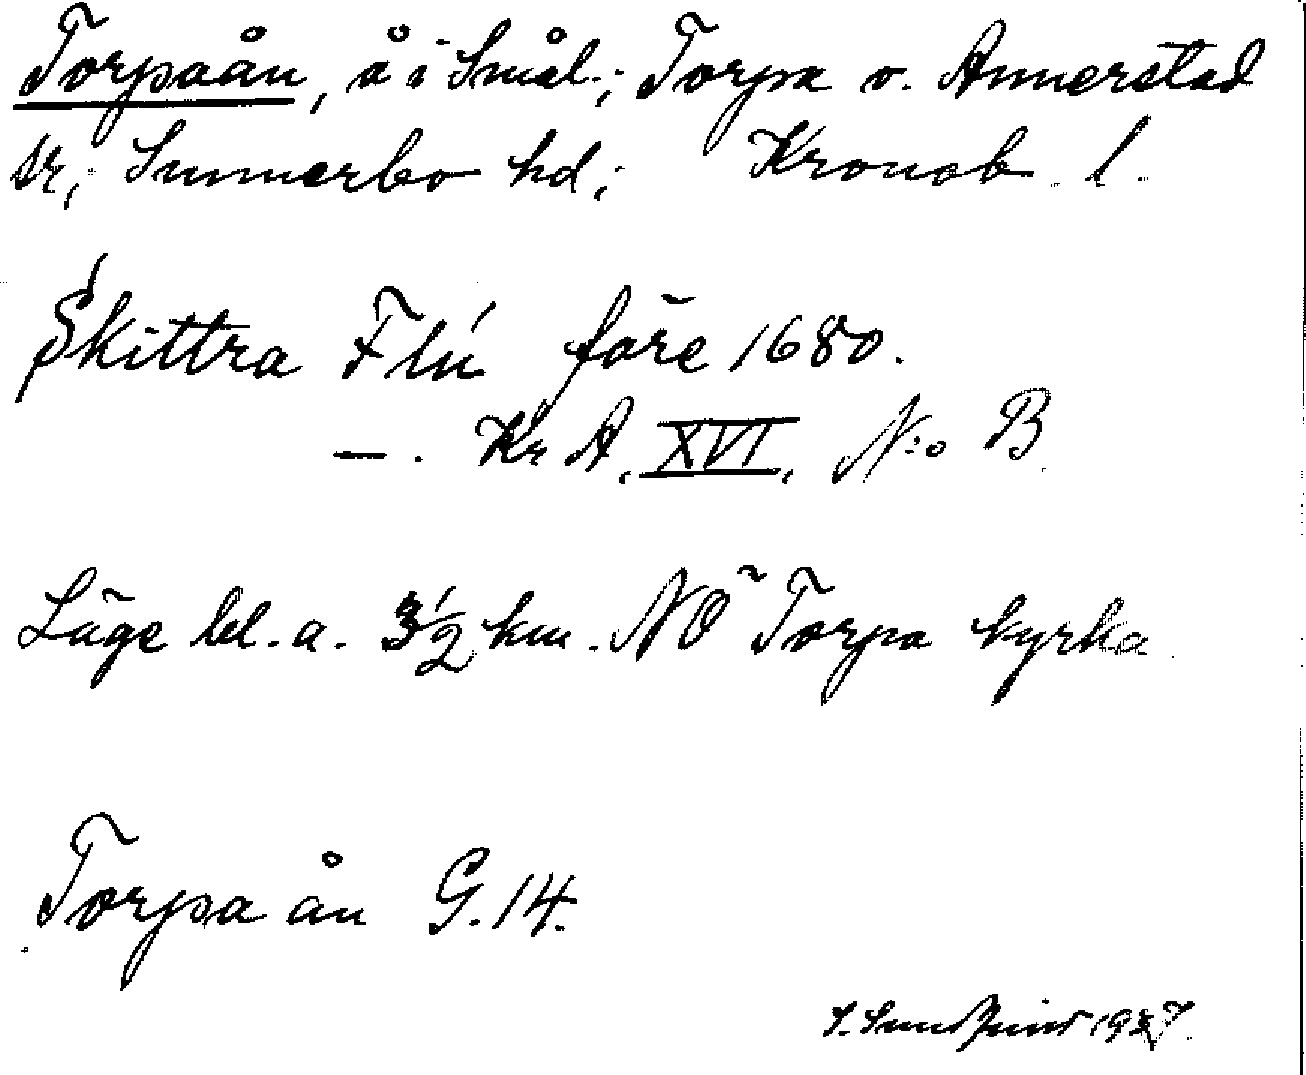 Torpaån, å i Smål.; Torpa o. Annerstad
sr; Sunnerbo hd; Kronob. l.
Skittra Flú före 1680.
—. Kr A. XVI, N:o B
Läge bl. a. 3 1/2 km. NO Torpa kyrka
Torpa ån G. 14.